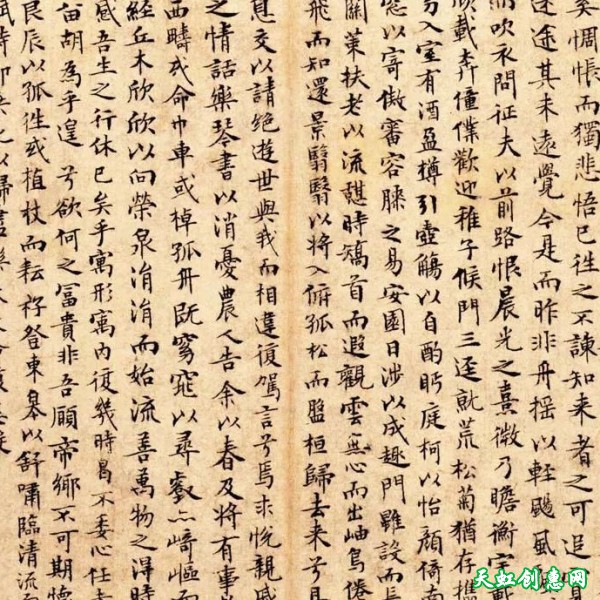 奚惆悵而獨悲悟已往之不諫知来者之可追
途其未遠覺今是而昨非舟摇以輕颺風
而吹衣問征夫以前路恨晨光之熹微乃瞻衡宇載
欣載奔僮僕歡迎稚子候門三逕就荒松菊猶存攜
入室有酒盈樽引壺觴以自酌眄庭柯以怡顏倚南
窓以寄傲審容膝之易安園日涉以成趣門雖設而長
關策扶老以流憩時矯首而遐觀雲無心而出岫鳥倦
飛而知還景翳翳以将入俯孤松而盤桓歸去来兮
息交以請絶遊世與我而相違復駕言兮焉求悦親戚
之情話樂琴書以消憂農人告余以春及将有事
西疇或命巾車或棹孤舟既窈窕以尋壑亦崎嶇而
經丘木欣欣以向榮泉涓涓而始流善萬物之得時
感吾生之行休已矣乎寓形寓内復幾時曷不委心任
留胡為乎遑兮欲何之富貴非吾願帝鄉不可期懷
良辰以孤往或植杖而耘耔登東皋以舒嘯臨清流
天虹创惠网